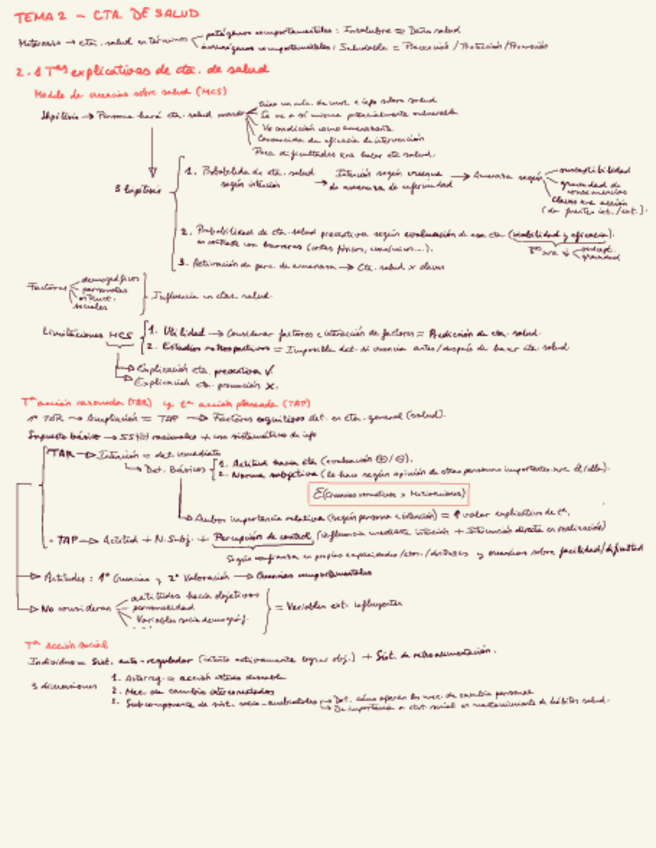 TEMA 2 - CTA. DE SALUD
Matarazzo → cta. salud en términos
patógenos comportamentales: Insalubre = Daña salud
inmunógenos comportamentales: Saludable = Prevención / Protección / Promoción
2.1 Tªs explicativas de cta. de salud
Modelo de creencias sobre salud (MCS)
Hipótesis → Persona hará cta. salud cuando
Tiene un min. de mot. e info sobre salud
Se ve a sí misma potencialmente vulnerable
Ve condición como amenazante
Convencida de eficacia de intervención
Poca dificultades para hacer cta. salud.
3 hipótesis
1. Probabilidad de cta. salud según intención → Intención según creencia de amenaza de enfermedad → Amenaza según
susceptibilidad
gravedad de consecuencias
Claves para acción (de fuentes int./ext.).
2. Probabilidad de cta. salud preventiva según evaluación de esa cta (viabilidad y eficacia).
en contraste con barreras (costes físicos, económicos...).
suscept.
gravedad
3. Activación de perc. de amenaza → Cta. salud x claves
Factores
demográficos
personales
estruct.
sociales
Influencia en ctas. salud.
Limitaciones MCS
1. Utilidad → Considerar factores e interacción de factores = Predicción de cta. salud.
2. Estudios retrospectivos = Imposible det. si creencia antes/después de hacer cta. salud
Explicación cta. preventiva ✓.
Explicación cta. promoción X.
Tª acción razonada (TAR) y tª acción planeada (TAP)
1º TAR → Ampliación = TAP → Factores cognitivos det. en cta. general (salud).
Supuesto básico → SSHH racionales + uso sistemático de info
TAR → Intención = det. inmediato
Det. Básicos
1. Actitud hacia cta (evaluación ⊕/⊖).
2. Norma subjetiva (lo hace según opinión de otras personas importantes para él/ella).
Σ(Creencias normativas x Motivaciones)
Ambos importancia relativa (según persona e intención) = ↑ valor explicativo de tª.
TAP → Actitud + N. Subj. + Percepción de control (influencia mediante intención + Intervención directa en realización)
Según confianza en propias capacidades/ y creencias sobre facilidad/dificultad
Actitudes: 1º Creencias y 2º Valoración → Creencias comportamentales
No consideran
actitudes hacia objetivos
personalidad
Variables sociodemográf.
= Variables ext. influyentes
Tª Acción social
Individuo = Sist. auto-regulador (intenta activamente lograr obj.) + Sist. de retroalimentación.
3 dimensiones
1. Autorreg. = acción estado deseable
2. Mec. de cambio interconectados
3. Subcomponente de sist. socio-ambientales
Det. cómo operan los mec. de cambio personal
Da importancia a ctxt. social en mantenimiento de hábitos salud.